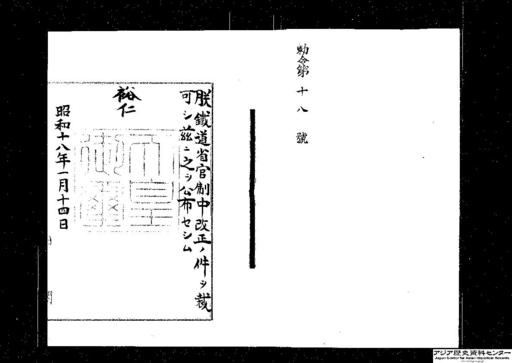 勅令第十八號
朕鐵道省官制中改正ノ件ヲ裁
可シ茲ニ之ヲ公布セシム
裕仁
天皇御璽
昭和十八年一月十四日
アジア歴史資料センター
Japan Center for Asian Historical Records